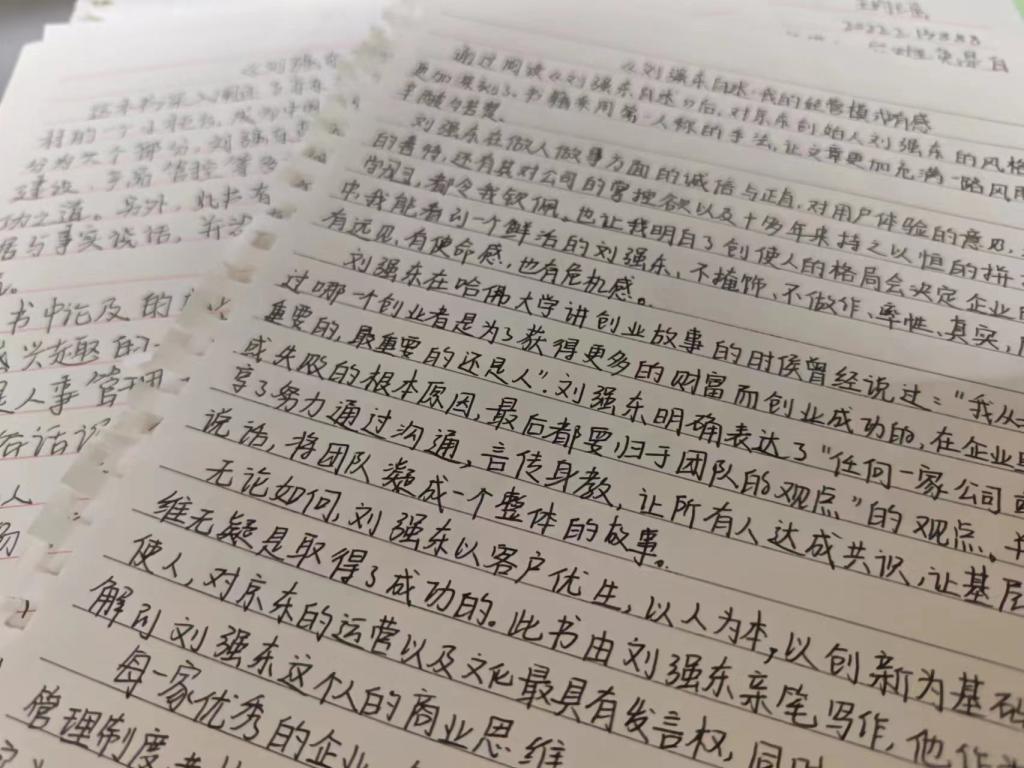 2022.2.
《刘强东自述：我的经营模式》有感
通过阅读《刘强东自述》后，对京东创始人刘强东的风格
更加深知了，书籍采用第一人称的手法，让文章更加充满一路风雨
刘强东在做人做事方面的诚信与正直，对用户体验的意见
的看待，还有其对公司的掌控欲以及十多年来持之以恒的拼
学习，都令我钦佩。也让我明白了创使人的格局会决定企业的
中我能看到一个鲜活的刘强东，不掩饰、不做作、率性、真实，
有远见，有使命感，也有危机感。
刘强东在哈佛大学讲创业故事的时侯曾经说过："我从
过哪一个创业者是为了获得更多的财富而创业成功的，在企业里
重要的，最重要的还是人".刘强东明确表达了"任何一家公司
或失败的根本原因，最后都要归于团队的观点"的观点。并
享了努力通过沟通，言传身教，让所有人达成共识，让基层
说话，将团队凝成一个整体的故事。
无论如何，刘强东以客户优生，以人为本，以创新为基础
维无疑是取得了成功的。此书由刘强东亲笔写作，他作为
使人，对京东的运营以及文化最具有发言权，同时
解到刘强东这个人的商业思维
每一家优秀的企业
管理制度
《刘强东
村的一个
分为六个部分，刘强东
建设、产品管控等
功之道。另外，此书有
据与事实说话，
书中论及的
感兴趣的
是人事管理